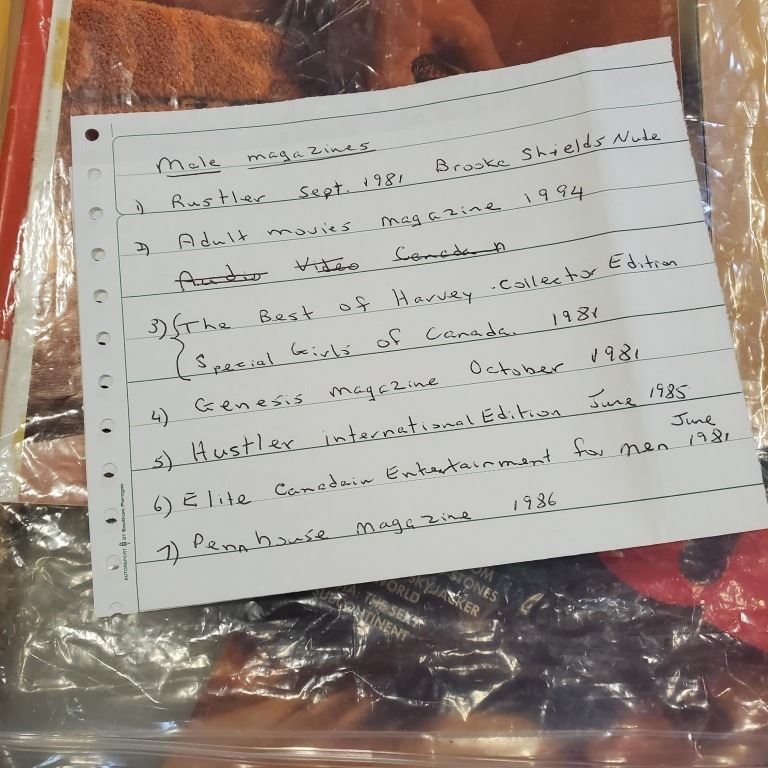 Male magazines
1) Rustler Sept. 1981 Brooke Shields Nude
2) Adult movies magazine 1994
Audio Video Canada
3) The Best of Harvey Collector Edition
Special Girls of Canada. 1981
4) Genesis magazine October 1981
5) Hustler international Edition June 1985
6) Elite Canadain Entertainment for men June 1981
7) Pennhouse magazine 1986
STONES
SKYJACKER
WORLD
THE SEXY
SUBCONTINENT